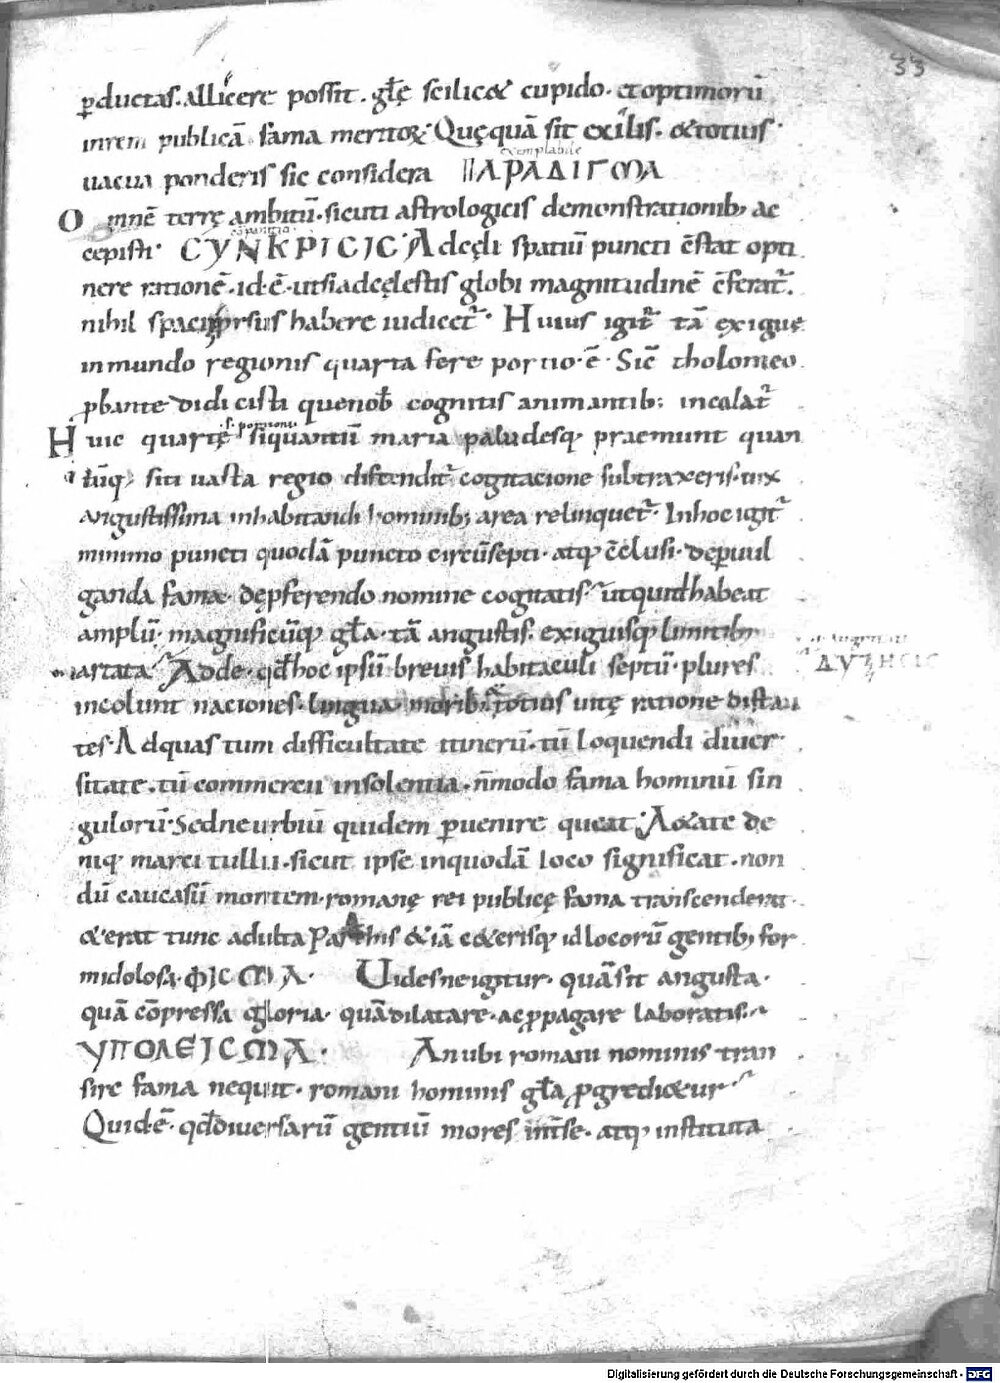 33
ꝑductas. allicere possit. gl̄ę scilic& cupido. et optimorū
inrem publicā fama meritoꝝ. Quę quā sit exilis. & totius
exemplabile
uacua ponderis sic considera ΠΑΡΑΔΙΓΜΑ
Omnē terrę ambitū. sicuti astrologicis demonstrationib; ac
cepisti. CΥΝΚΡΙCΙC. Ad cęli spatiū puncti c̄stat opti
nere rationē. id. ē. ut si ad cęlestis globi magnitudinē c̄feratur.
nihil spacii prorsus habere iudicet. Huius igit̄ tā exiguę
in mundo regionis quarta fere portio. ē. Sic̄ tholomeo
ꝓbante didicisti que nob̄ cognitis animantib; incolat̄
Huic quartę si quantū maria paludesq; praemunt quan
tūq; siti uasta regio distendit̄ cogitacione subtraxeris. uix
angustissima inhabitandi hominib; area relinquet̄. In hoc igit̄
minimo puncti quodā puncto circūsepti. atq; c̄clusi. de peruul
ganda fama. de pferendo nomine cogitatis. ut quid habeat
amplū. magnificūq; gl̄a. tā angustis. exiguisq; limitib;
artata Adde. qđ hoc ipsū breuis habitaculi septū. plures
ΑΥΞΗCΙC
incolunt naciones. lingua. morib; totius uitę ratione distan
tes. Ad quas tum difficultate itinerū. tū loquendi diuer
sitate. tū commercii insolentia. n̄ modo fama hominū sin
gulorū. Sed ne urbiū quidem ꝑuenire queat. Aetate de
niq; marci tullii. sicut ipse in quodā loco significat. non
dū caucasū montem. romanę rei publicę fama transcenderat
& erat tunc adulta Parthis & iā ceterisq; id locorū gentib; for
midolosa. ΦΙCΜΑ. Uidesne igitur. quā sit angusta.
quā cōpressa gloria. quā dilatare. ac ꝓpagare laboratis.
ΥΠΟΛΕΙCΜΑ. An ubi romani nominis tran
sire fama nequit. romani hominis gl̄a ꝓgredi&ur
Quid. ē. qđ diuersarū gentiū mores int̄ se. atq; instituta
Digitalisierung gefördert durch die Deutsche Forschungsgemeinschaft - DFG